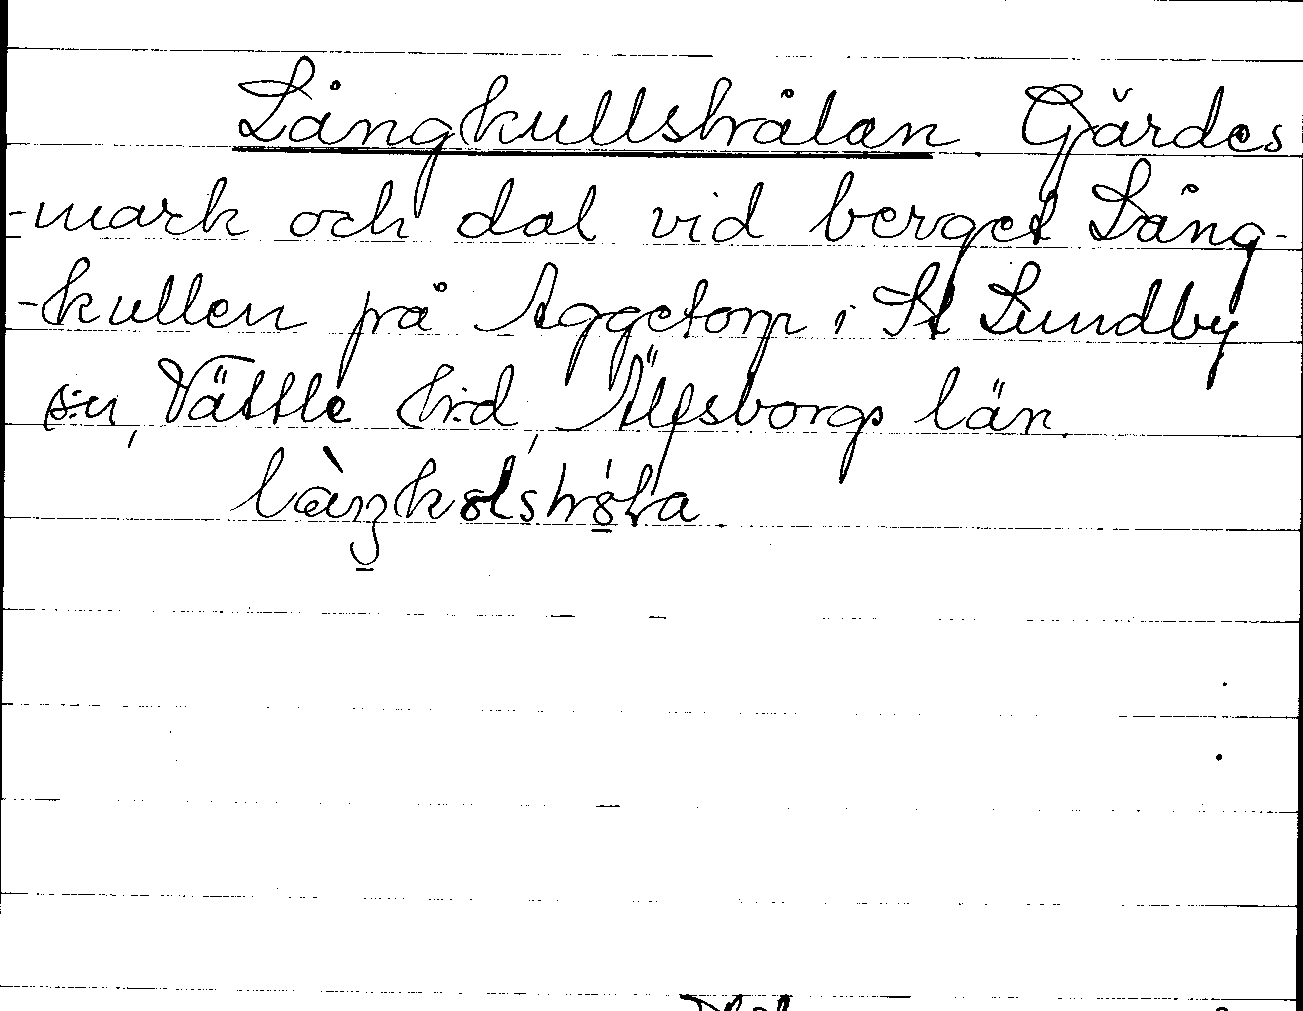 Långkullstrålan. Gärdes
-mark och dal vid berget Lång-
-kullen på Aggetorp i St Lundby
s:n, Vättle h:d, Älfsborgs län.